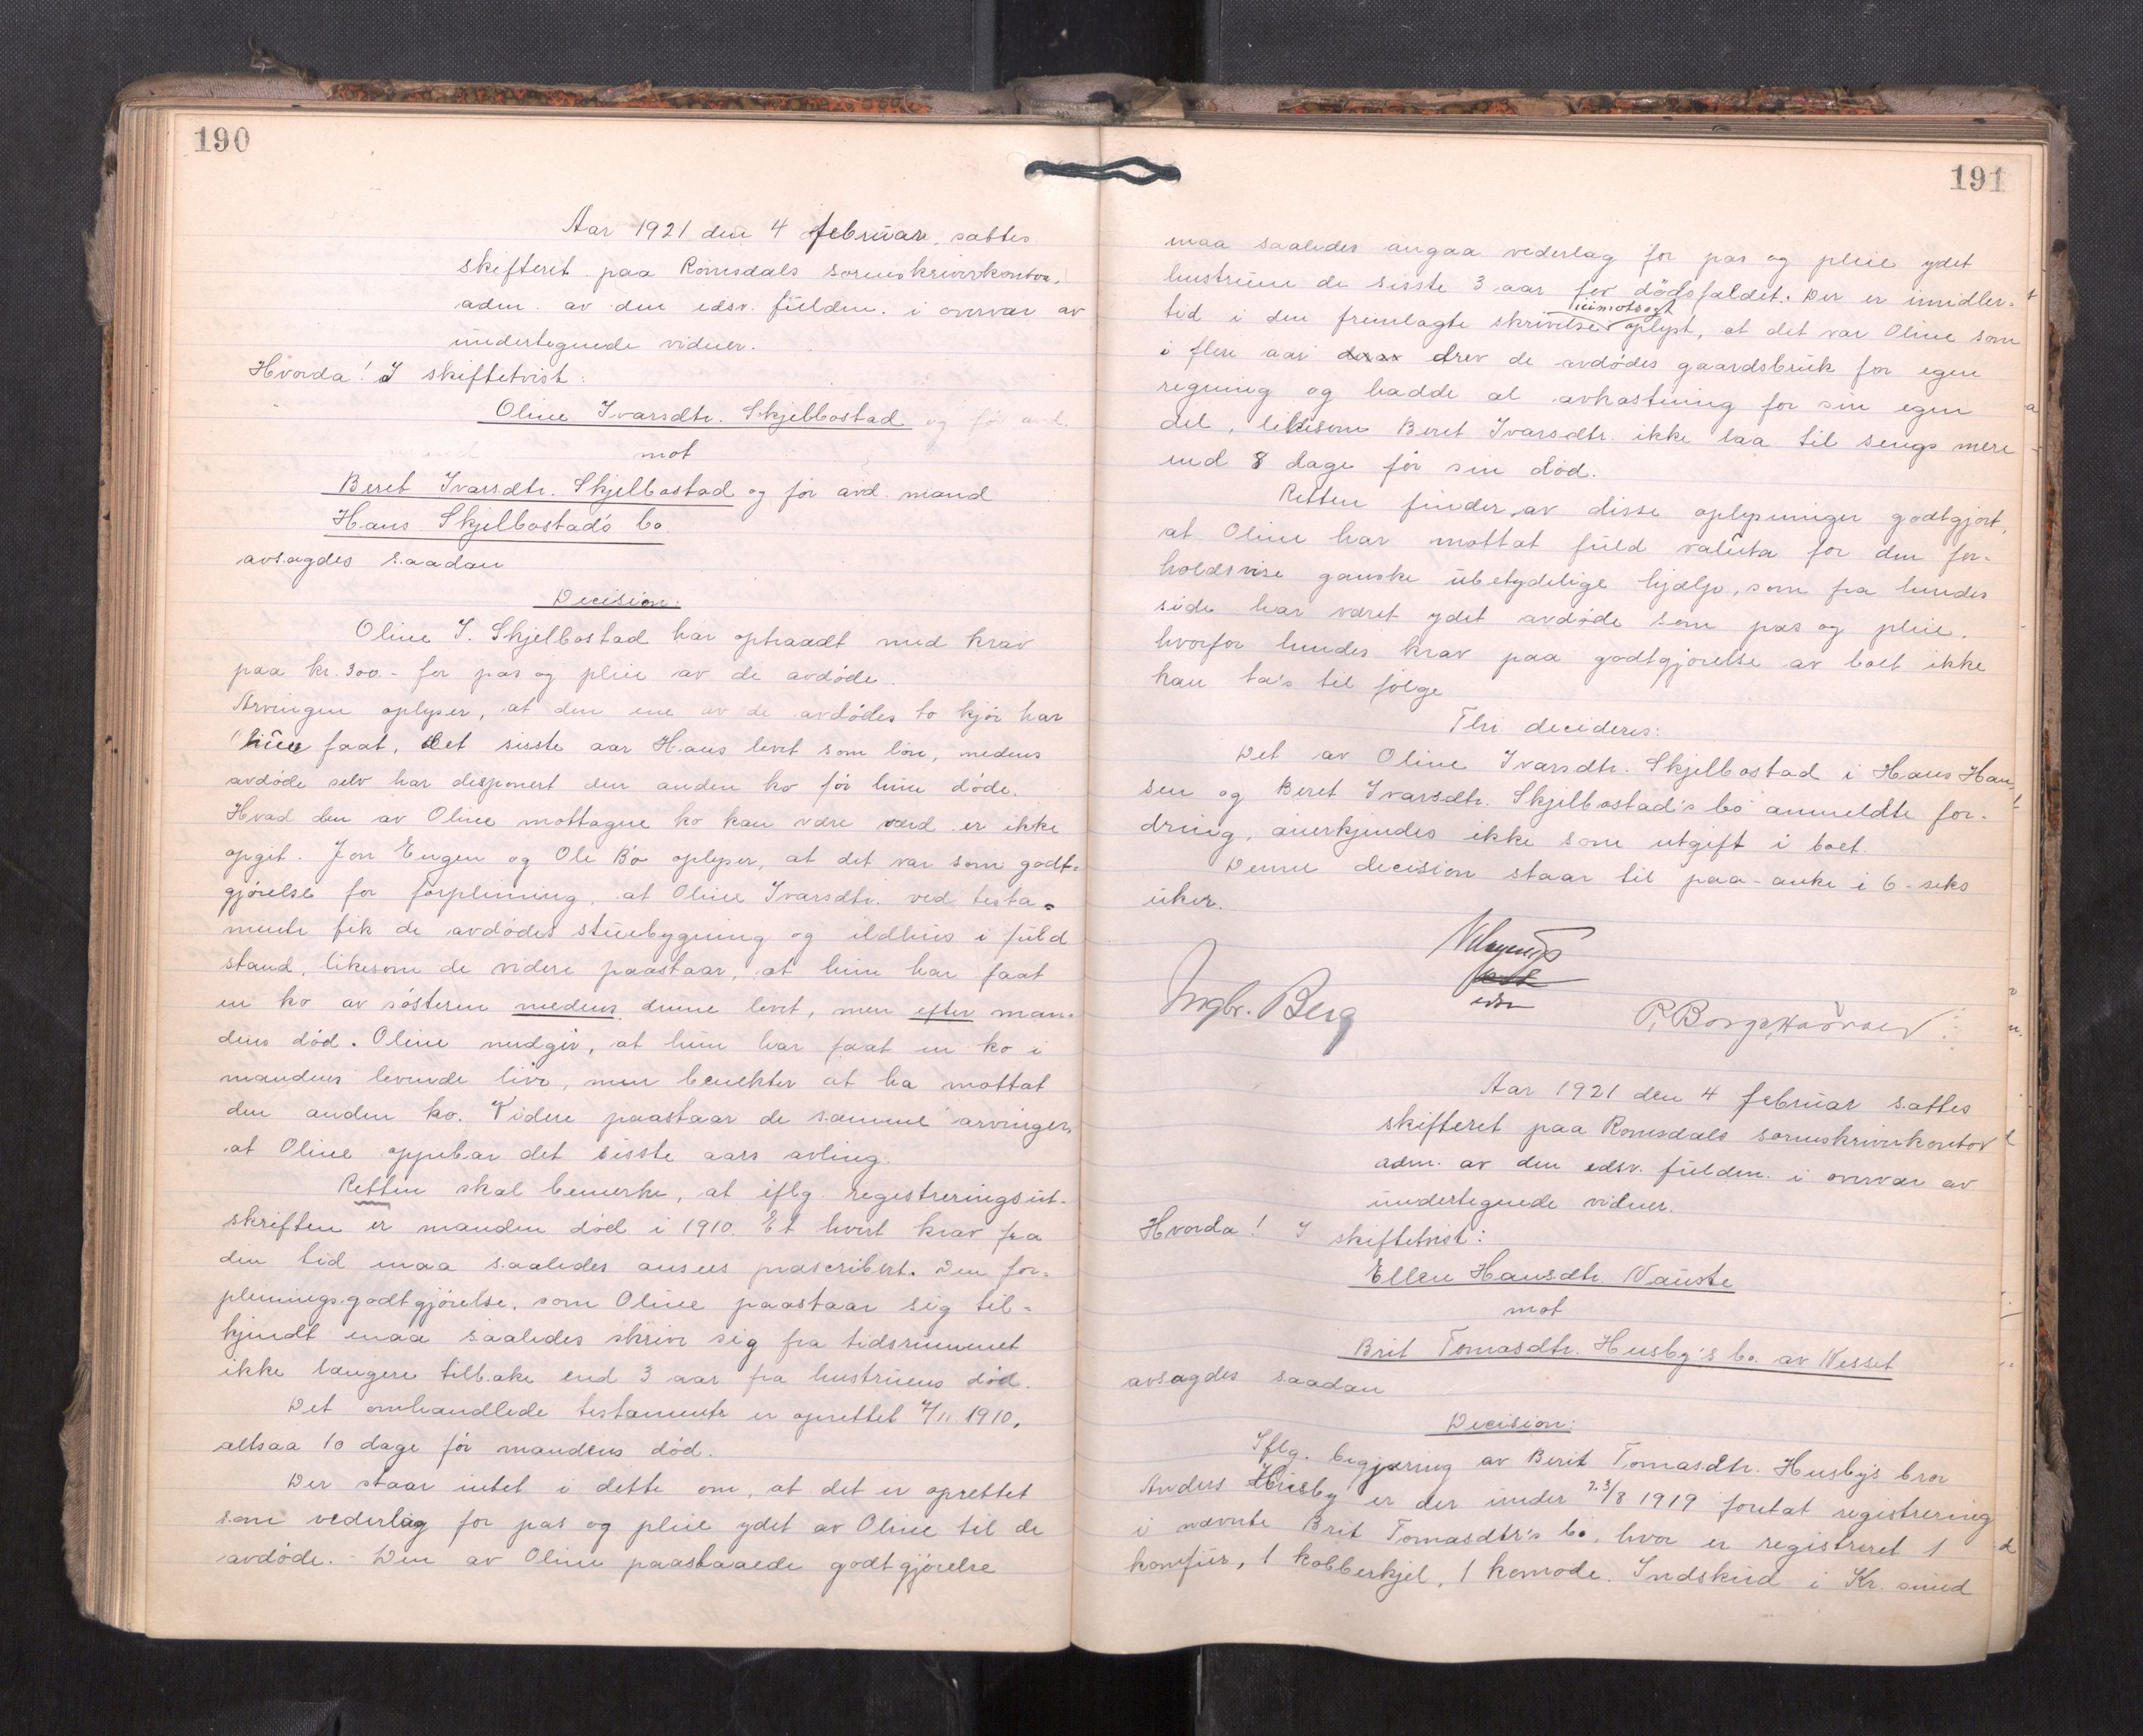 190
Aar 1921 den 4 februar sattes
skifteret paa Romsdals sorenskriverkontor,
adm. av den edsv. fuldm. i overvær av
undertegnede vidner.
Hvorda! I skiftetvist:
Oline Ivarsdtr. Skjelbostad
mot
Beret Ivarsdtr. Skjelbostad og før avd. mand
Hans Skjelbostad's bo
avsagdes saadan
Decision:
Oline I. Skjelbostad har optraadt med krav
paa kr. 300.- for pas og pleie av de avdøde.
Arvingen oplyser, at den ene av de avdødes to kjør har
hun faat, det sisste aar Hans levet som løn, medens
avdøde selv har disponert den anden ko før hun døde.
Hvad den av Oline mottagne ko kan være værd er ikke
opgit. Jon Engen og Ole Bø oplyser, at det var som godt-
gjørelse for forpleining, at Oline Ivarsdtr. ved testa-
mente fik de avdødes stuebygning og ildhus i fuld
stand, likesom de videre paastaar, at hun har faat
en ko av søsteren medens denne levet, men efter man-
dens død. Oline medgir, at hun har faat en ko i
mandens levende live, men benekter at ha mottat
den anden ko. Videre paastaar de samme arvinger,
at Oline oppebar det sisste aars avling.
Retten skal bemerke, at iflg. registreringsut-
skriften er manden død i 1910. Et hvert krav fra
den tid maa saaledes ansees præscribert. Den for-
pleiningsgodtgjørelse, som Oline paastaar sig til-
kjendt maa saaledes skrive sig fra tidsrummet
ikke længere tilbake end 3 aar fra hustruens død.
Det omhandlede testamente er oprettet 4/11 1910,
altsaa 10 dage før mandens død.
Der staar intet i dette om, at det er oprettet
som vederlag for pas og pleie ydet av Oline til de
avdøde. - Den av Oline paastaaede godtgjørelse
191
maa saaledes angaa vederlag for pas og pleie ydet
hustruen de sisste 3 aar før dødsfaldet. Der er imidler-
tid i den fremlagte skrivelse uimotsagt oplyst, at det var Oline som
i flere aar drev de avdødes gaardsbruk for egen
regning og hadde al avkastning for sin egen
del, likesom Beret Ivarsdtr. ikke laa til sengs mere
end 8 dage før sin død.
Retten finder av disse oplysninger godtgjort,
at Oline har mottat fuld valuta for den for-
holdsvise ganske ubetydelige hjælp, som fra hendes
side har været ydet avdøde som pas og pleie,
hvorfor hendes krav paa godtgjørelse av boet ikke
kan ta's til følge
Thi decideres:
Det av Oline Ivarsdtr. Skjelbostad i Hans Han-
sen og Beret Ivarsdtr. Skjelbostad's bo anmeldte for-
dring, anerkjendes ikke som utgift i boet.
Denne decision staar til paa-anke i 6-seks
uker.
Ingbr. Berg
Aar 1921 den 4 februar sattes
skifteret paa Romsdals sorenskriverkontor
adm. av den edsv. fuldm. i overvær av
undertegnede vidner.
Hvorda! I skiftetvist:
Ellen Hansdtr. Nauste
mot
Brit Tomasdtr. Husby's bo av Nesset
avsagdes saadan
Decision:
Iflg. begjæring av Berit Tomasdtr. Husby's bror
Anders Husby er der under 23/8 1919 foretat registrering
i nævnte Brit Tomasdtr's bo, hvor er registreret 1
komfur, 1 kobberkjel, 1 komode. Indskud i Kr. sund